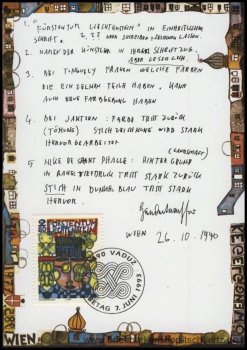 1. "FÜRSTENTUM LIECHTENSTEIN" IN EINHEITLICHER
SCHRIFT.
2. NAMEN DER KÜNSTLER IN IHRER SCHRIFTZUG.
ABER LESERLICH.
3. BEI TINGUELY FRAGEN WELCHE FARBEN
DIE EINZELNEN TEILE HABEN. KANN
AUCH NEUE FARBGEBUNG HABEN
4. BEI JANTION: FARBE TRITT ZURÜCK
(TÖNUNG) STICHZEICHNUNG WIRD STARK
HERVORGEARBEITET
(LANDSCHAFT)
5 NIKI DE SAINT PHALLE: HINTERGRUND
TRITT STARK ZURÜCK
STICH IN DUNKELBLAU TRITT STARK
HERVOR.
Hundertwasser
WIEN 26.10.1990
LIECHTENSTEIN
80
90 VADUZ
ETAG 7. JUNI 1993
WIEN